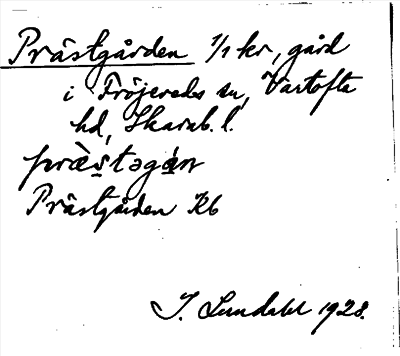 Prästgården 1/1 kr, gård
i Fröjereds sn, Vartofta
hd, Skarab. l.
præ̀stəgán
Prästgården Kb
I. Lundahl 1928.